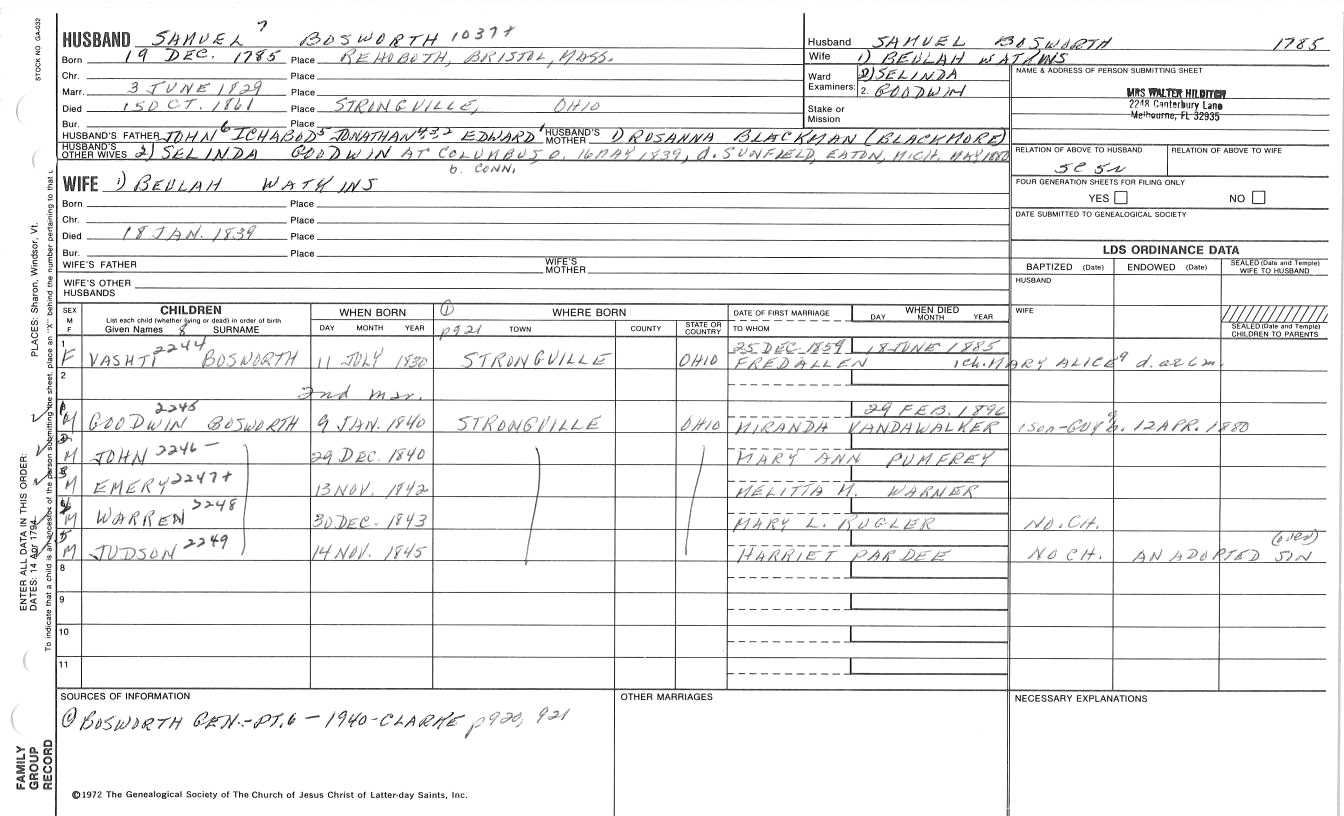 HUSBAND SAMUEL 7 BOSWORTH 1037+
Born 19 DEC. 1785 Place REHOBOTH, BRISTOL, MASS.
Chr. Place
Marr. 3 JUNE 1829 Place
Died 15 OCT. 1861 Place STRINGVILLE, OHIO
Bur. Place
HUSBAND'S FATHER JOHN 6 ICHABOD 5 JONATHAN 4,3,2 EDWARD 1 HUSBAND'S MOTHER 1) ROSANNA BLACKMAN (BLACKMORE)
HUSBAND'S OTHER WIVES 2) SELINDA GOODWIN AT COLUMBUS O. 16 MAY 1839, d. SUNFIELD, EATON, MICH. MAY 1880
b. CONN.
Husband SAMUEL BOSWORTH 1785
Wife 1) BEULAH WATKINS
Ward 2) SELINDA
Examiners: 2. GOODWIN
Stake or Mission
NAME & ADDRESS OF PERSON SUBMITTING SHEET
MRS WALTER HILDITCH
2248 Canterbury Lane
Melbourne, FL 32935
RELATION OF ABOVE TO HUSBAND RELATION OF ABOVE TO WIFE
5C 5N
FOUR GENERATION SHEETS FOR FILING ONLY
YES NO
DATE SUBMITTED TO GENEALOGICAL SOCIETY
WIFE 1) BEULAH WATKINS
Born Place
Chr. Place
Died 18 JAN. 1839 Place
Bur. Place
WIFE'S FATHER WIFE'S MOTHER
WIFE'S OTHER HUSBANDS
LDS ORDINANCE DATA
BAPTIZED (Date) ENDOWED (Date) SEALED (Date and Temple) WIFE TO HUSBAND
HUSBAND
WIFE
SEALED (Date and Temple) CHILDREN TO PARENTS
SEX M F CHILDREN List each child (whether living or dead) in order of birth Given Names 8 SURNAME
WHEN BORN DAY MONTH YEAR
① p921 WHERE BORN TOWN COUNTY STATE OR COUNTRY
DATE OF FIRST MARRIAGE TO WHOM WHEN DIED DAY MONTH YEAR
25 DEC 1859 18 JUNE 1885
1 F VASHTI 2244 BOSWORTH 11 JULY 1830 STRONGVILLE OHIO FRED ALLEN 1ch. MARY ALICE 9 d. at 6m.
2 2nd mar.
29 FEB. 1896
M GOODWIN 2245 BOSWORTH 9 JAN. 1840 STRONGVILLE OHIO MIRANDA VANDAWALKER 1 son-GUY 9 b. 12 APR. 1880
M JOHN 2246 - 29 DEC. 1840 MARY ANN PUMFREY
M EMERY 2247+ 13 NOV. 1842 MELITTA M. WARNER
M WARREN 2248 30 DEC. 1843 MARY L. RUGLER NO. CH.
M JUDSON 2249 14 NOV. 1845 HARRIET PARDEE NO CH. AN ADOPTED SON (DIED)
8
9
10
11
SOURCES OF INFORMATION
① BOSWORTH GEN.-PT. 6 - 1940-CLARKE p920, 921
OTHER MARRIAGES
NECESSARY EXPLANATIONS
©1972 The Genealogical Society of The Church of Jesus Christ of Latter-day Saints, Inc.
STOCK NO. GA-032
PLACES: Sharon, Windsor, Vt.
ENTER ALL DATA IN THIS ORDER:
DATES: 14 Apr 1794
To indicate that a child is an ancestor of the person submitting the sheet, place an "X" behind the number pertaining to that
FAMILY GROUP RECORD